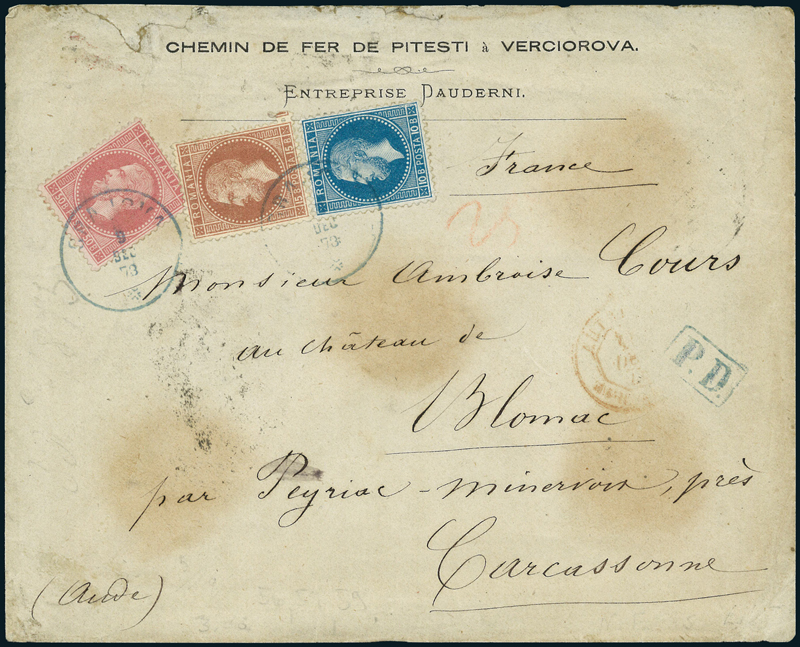 CHEMIN DE FER DE PITESTI à VERCIOROVA.
ENTREPRISE DAUDERNI.
ROMANIA
50 B
ROMANIA
15 B POSTA 15 B
ROMANIA
10 B POSTA 10 B
France
25
9
DEC
73
DEC
73
Monsieur Ambroise Cours
au château de
P.D.
Blomac
par Peyriac-minervois, près
Carcassonne
(Aude)